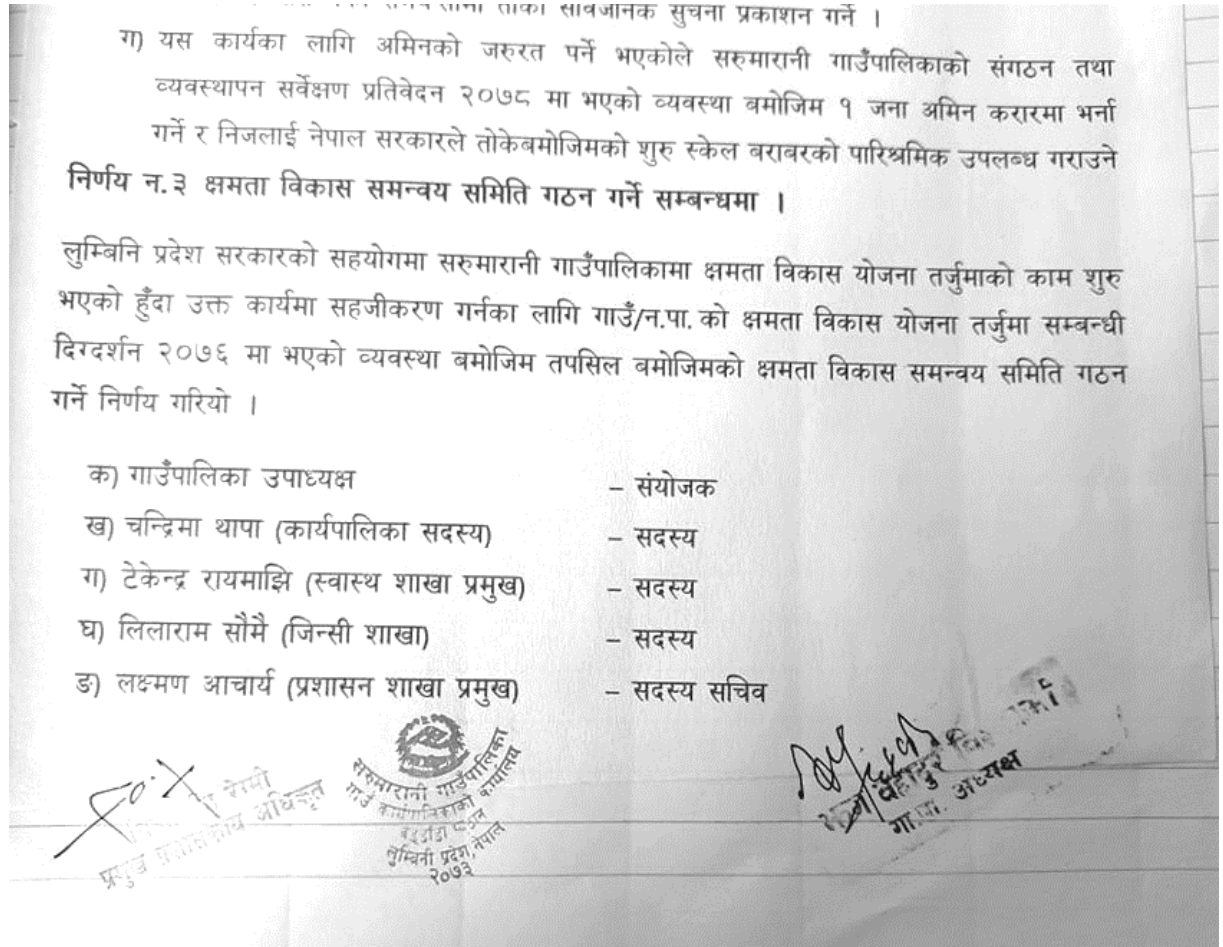 सार्वजनिक सुचना प्रकाशन गर्ने ।
ग) यस कार्यका लागि अमिनको जरुरत पर्ने भएकोले सरुमारानी गाउँपालिकाको संगठन तथा
व्यवस्थापन सर्वेक्षण प्रतिवेदन २०७८ मा भएको व्यवस्था बमोजिम १ जना अमिन करारमा भर्ना
गर्ने र निजलाई नेपाल सरकारले तोकेबमोजिमको शुरु स्केल बराबरको पारिश्रमिक उपलब्ध गराउने
निर्णय न.३ क्षमता विकास समन्वय समिति गठन गर्ने सम्बन्धमा ।
लुम्बिनि प्रदेश सरकारको सहयोगमा सरुमारानी गाउँपालिकामा क्षमता विकास योजना तर्जुमाको काम शुरु
भएको हुँदा उक्त कार्यमा सहजीकरण गर्नका लागि गाउँ/न.पा. को क्षमता विकास योजना तर्जुमा सम्बन्धी
दिग्दर्शन २०७६ मा भएको व्यवस्था बमोजिम तपसिल बमोजिमको क्षमता विकास समन्वय समिति गठन
गर्ने निर्णय गरियो ।
क) गाउँपालिका उपाध्यक्ष – संयोजक
ख) चन्द्रिमा थापा (कार्यपालिका सदस्य) – सदस्य
ग) टेकेन्द्र रायमाझि (स्वास्थ शाखा प्रमुख) – सदस्य
घ) लिलाराम सौमै (जिन्सी शाखा) – सदस्य
ङ) लक्ष्मण आचार्य (प्रशासन शाखा प्रमुख) – सदस्य सचिव
सरुमारानी गाउँपालिका
गाउँ कार्यपालिकाको कार्यालय
लुम्बिनी प्रदेश, नेपाल
२०७३
रेग्मी
प्रमुख प्रशासकीय अधिकृत
बहादुर
गा.पा. अध्यक्ष